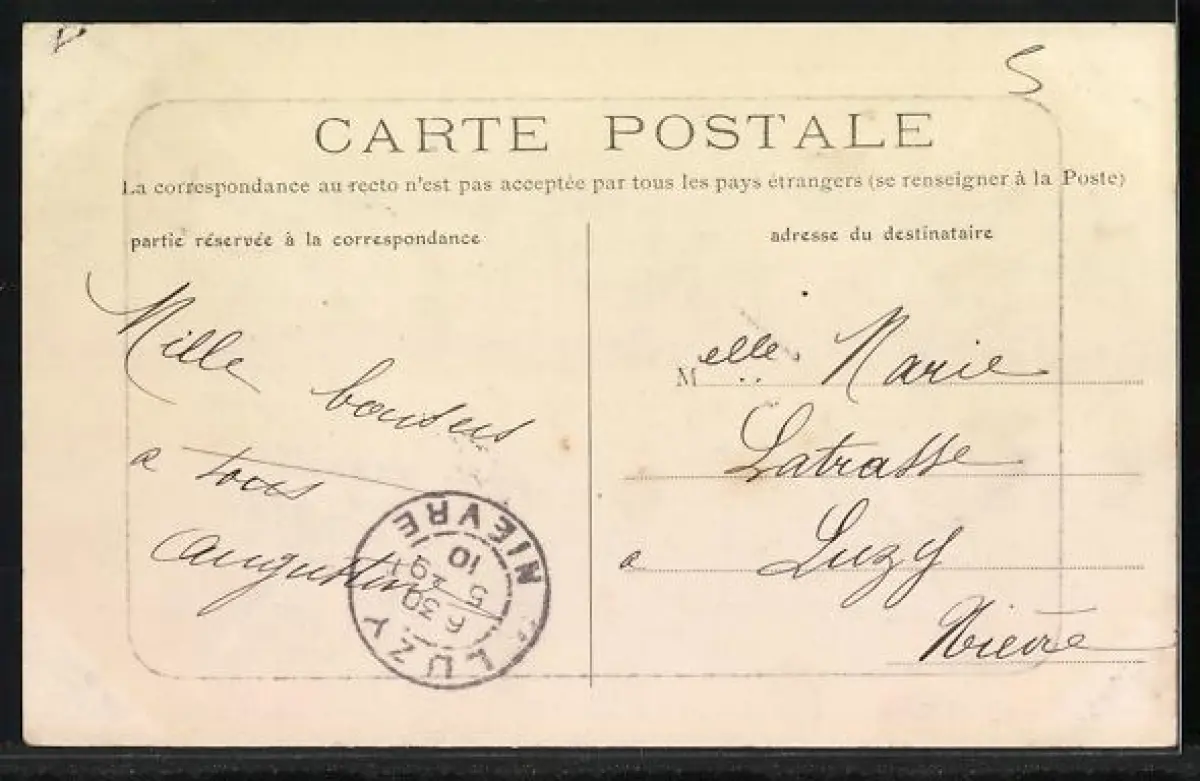 CARTE POSTALE
La correspondance au recto n'est pas acceptée par tous les pays étrangers (se renseigner à la Poste)
partie réservée à la correspondance
adresse du destinataire
Mille
a tous
Augustin
Melle. Marie
Latrasse
a Luzy
Nièvre
LUZY
NIEVRE
6 30
10
5